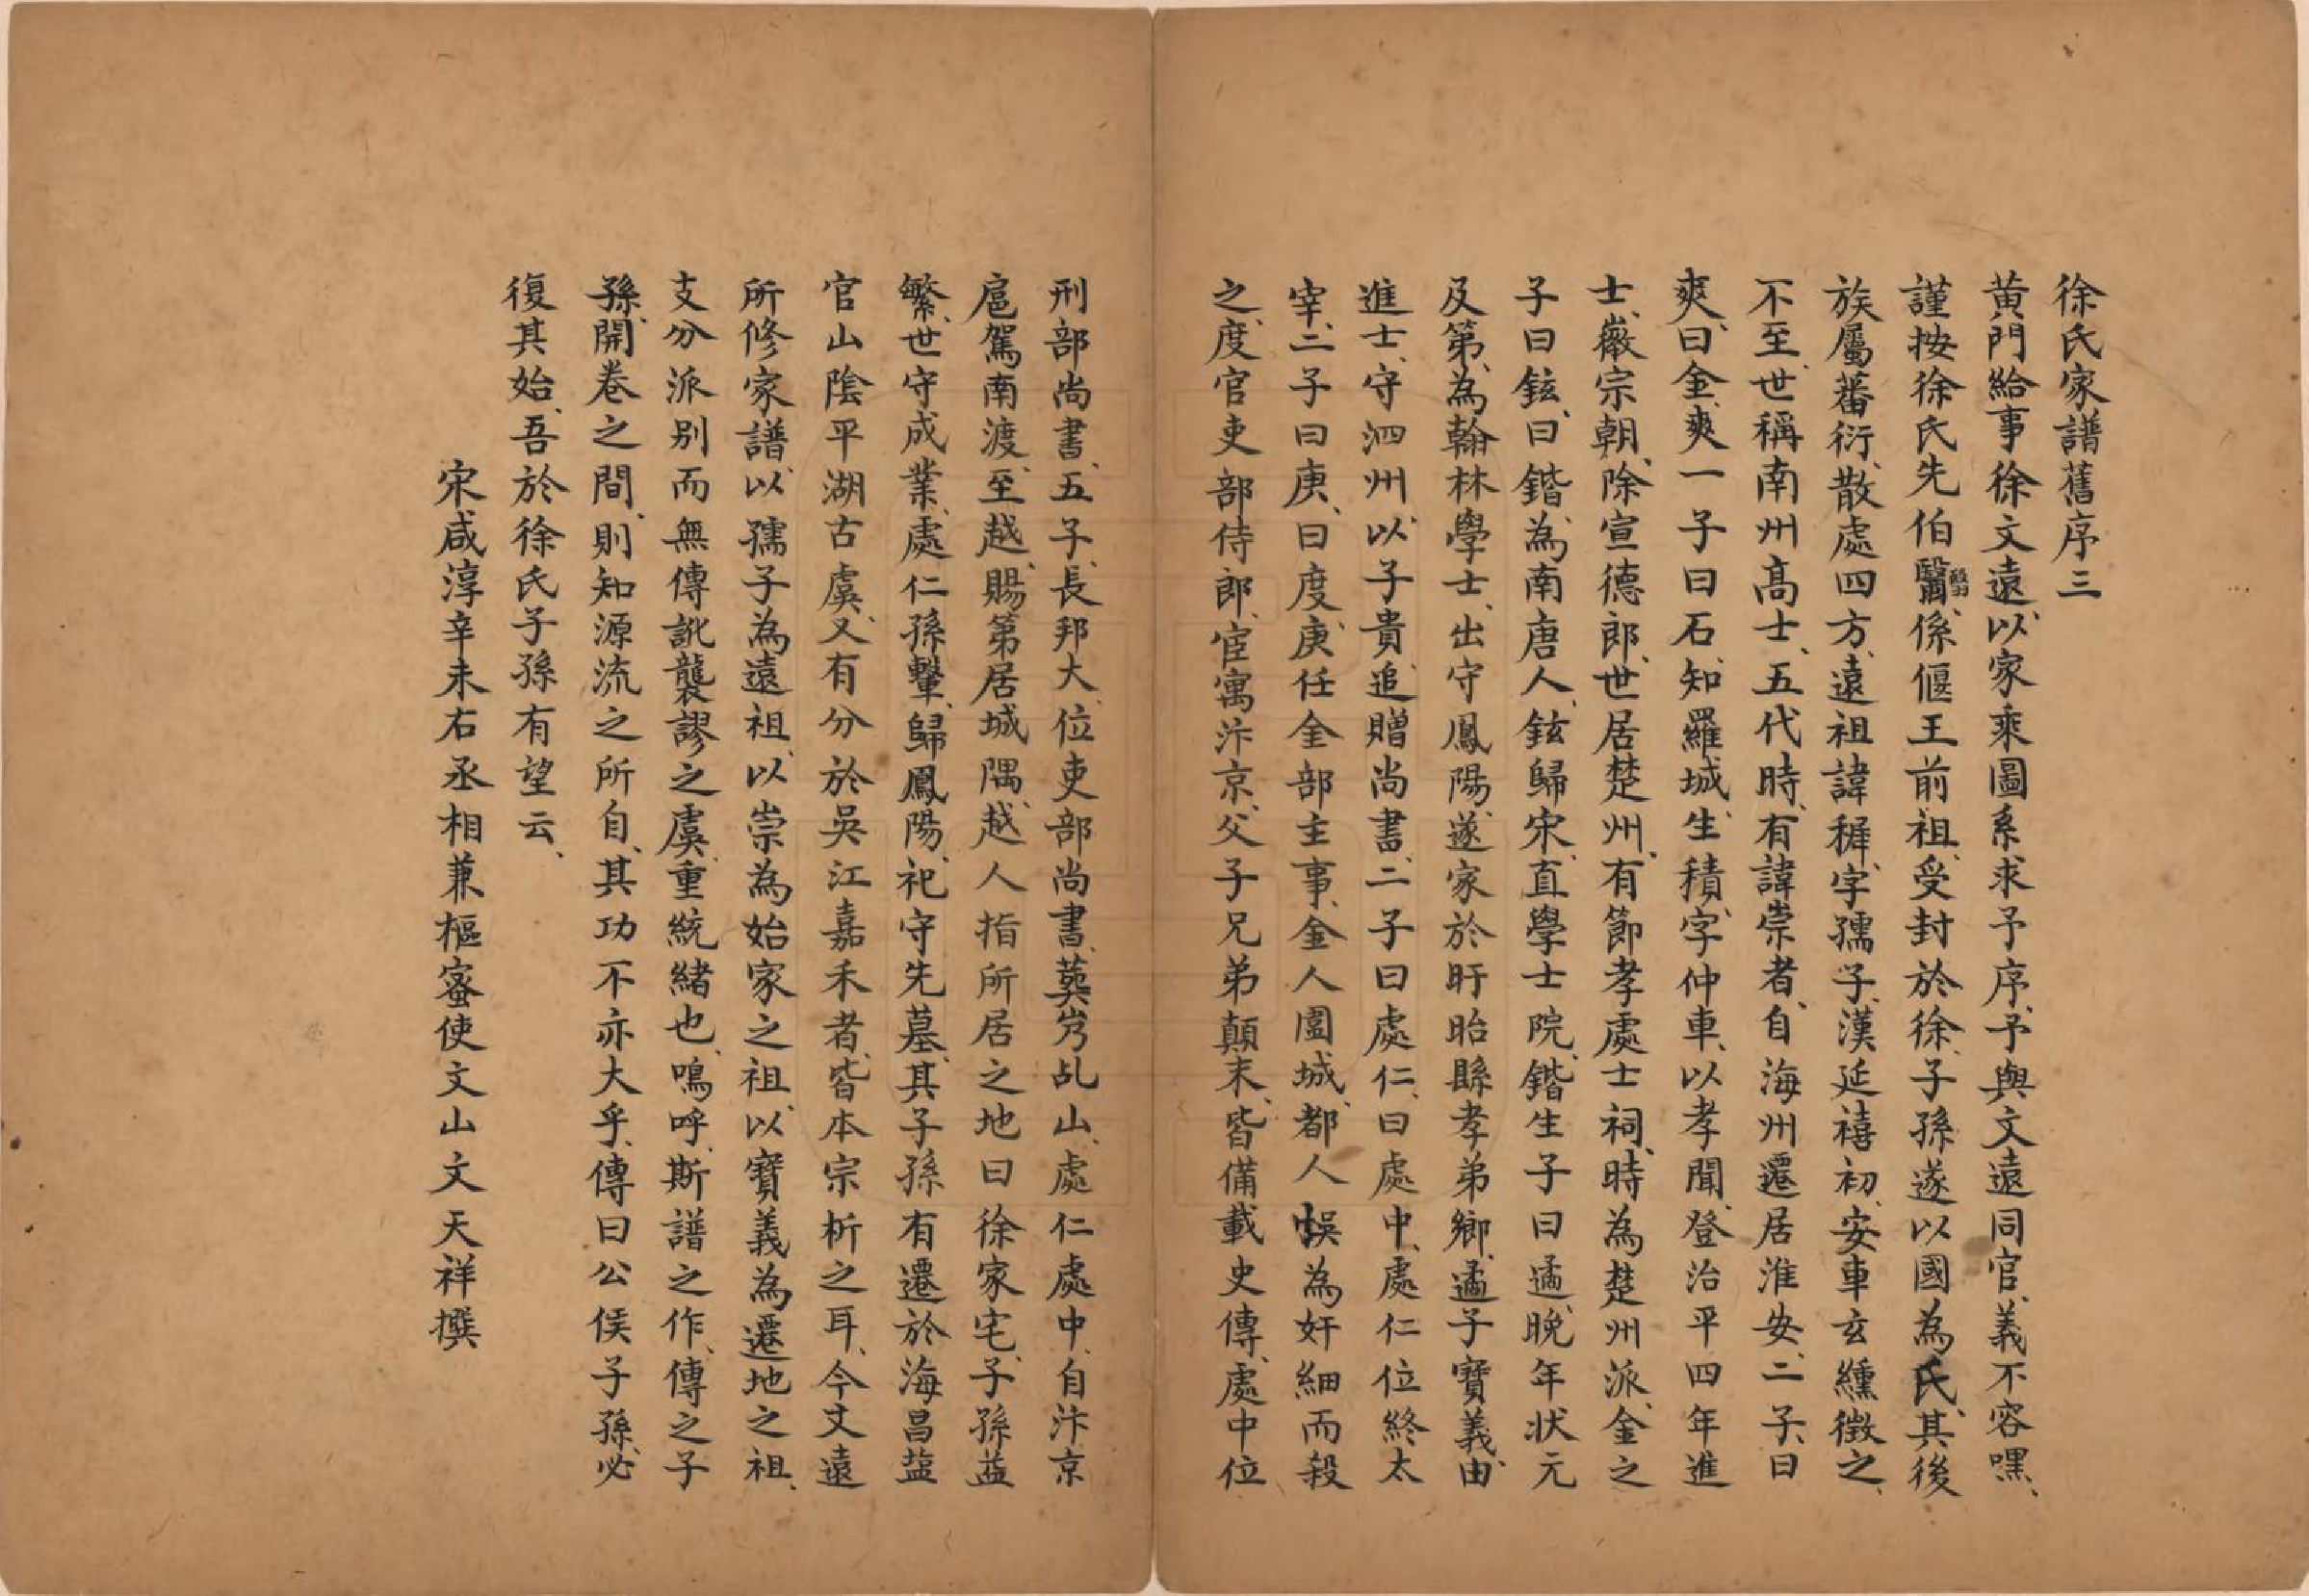 徐氏家譜舊序三
黄門給事徐文遠、以家乘圖系求予序、予與文遠同官、義不容嘿、
謹按徐氏先伯翳、係偃王前祖、受封於徐、子孫遂以國為氏、其後
族屬蕃衍、散處四方、遠祖諱穉、字孺子、漢延禧初、安車玄纁徵之、
不至、世稱南州高士、五代時、有諱崇者、自海州遷居淮安、二子、曰
爽、曰金、爽一子曰石、知羅城、生積、字仲車、以孝聞、登治平四年進
士、徽宗朝、除宣德郎、世居楚州、有節孝處士祠、時為楚州派、金之
子曰鉉、曰鍇、為南唐人、鉉歸宋、直學士院、鍇生子曰遹、晚年狀元
及第、為翰林學士、出守鳳陽、遂家於盱眙縣孝弟鄉、遹子寶義、由
進士、守泗州、以子貴、追贈尚書、二子曰處仁、曰處中、處仁位終太
宰、二子曰庚、曰度、庚任金部主事、金人圍城、都人悞為奸細而殺
之、度官吏部侍郎、宦寓汴京、父子兄弟顛末、皆備載史傳、處中位
刑部尚書、五子、長邦大、位吏部尚書、葬岊乩山、處仁處中、自汴京
扈駕南渡、至越、賜第居城隅、越人指所居之地曰徐家宅、子孫益
繁、世守成業、處仁孫輦、歸鳳陽、祀守先墓、其子孫有遷於海昌蓝
官山陰平湖古虞、又有分於吳江嘉禾者、皆本宗析之耳、今文遠
所修家譜、以孺子為遠祖、以崇為始家之祖、以寶義為遷地之祖、
支分派別而無傳訛襲謬之虞、重統緒也、嗚呼、斯譜之作、傳之子
孫、開卷之間、則知源流之所自、其功不亦大乎、傳曰公侯子孫、必
復其始、吾於徐氏子孫有望云、
宋咸淳辛未右丞相兼樞密使文山文天祥撰